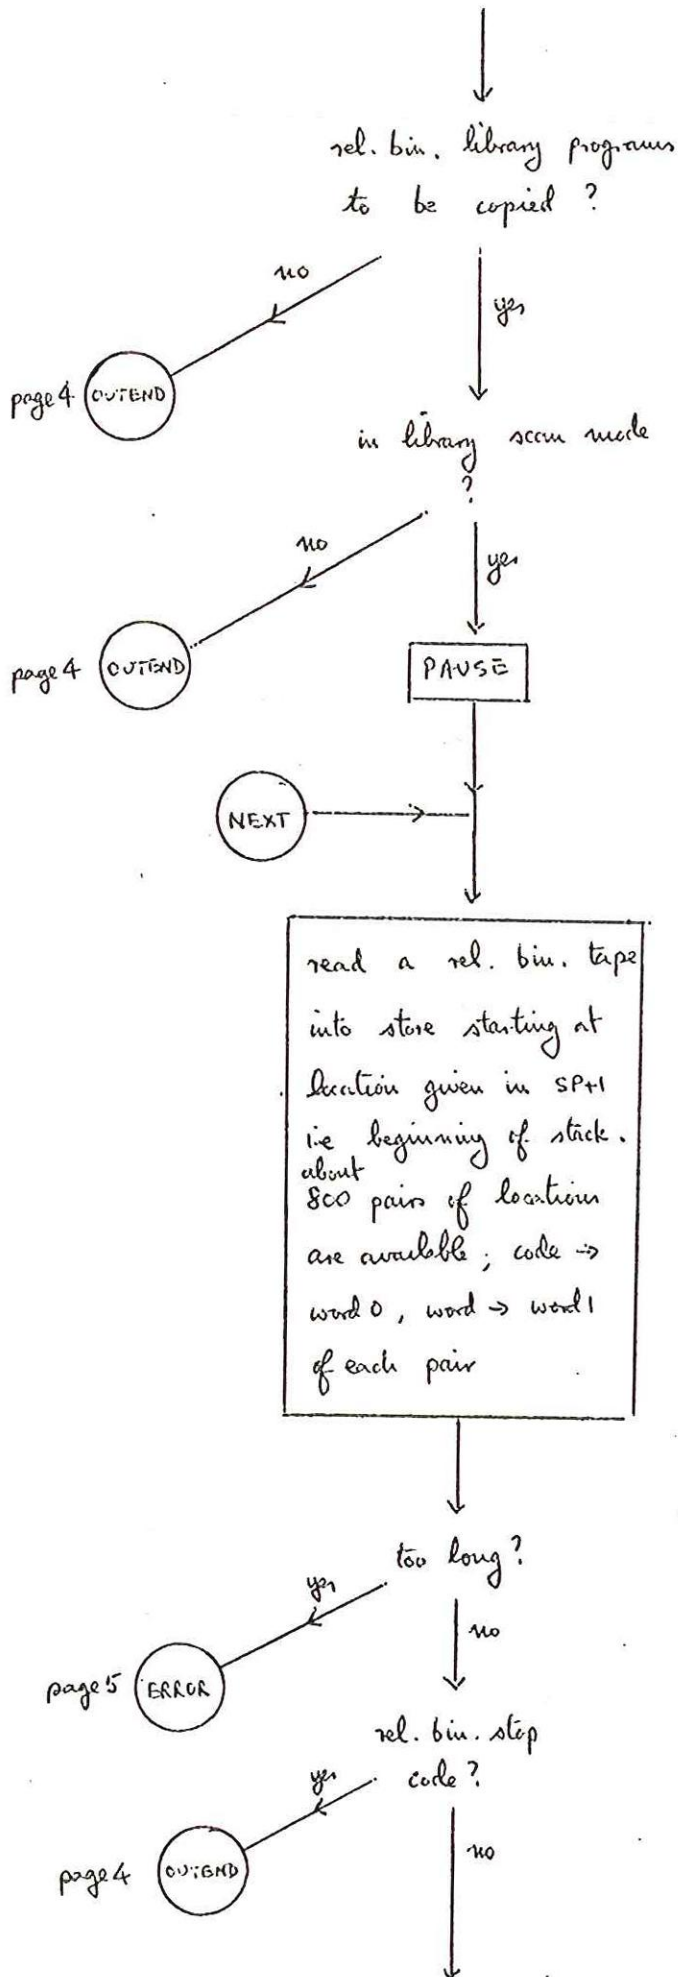 rel. bin. library programs
to be copied ?
no
yes
page 4 OUTEND
in library scan mode
?
no
yes
page 4 OUTEND
PAUSE
NEXT
read a rel. bin. tape
into store starting at
location given in SP+1
i.e beginning of stack.
about
800 pairs of locations
are available ; code →
word 0, word → word 1
of each pair
too long ?
yes
no
page 5 ERROR
rel. bin. stop
code ?
yes
no
page 4 OUTEND